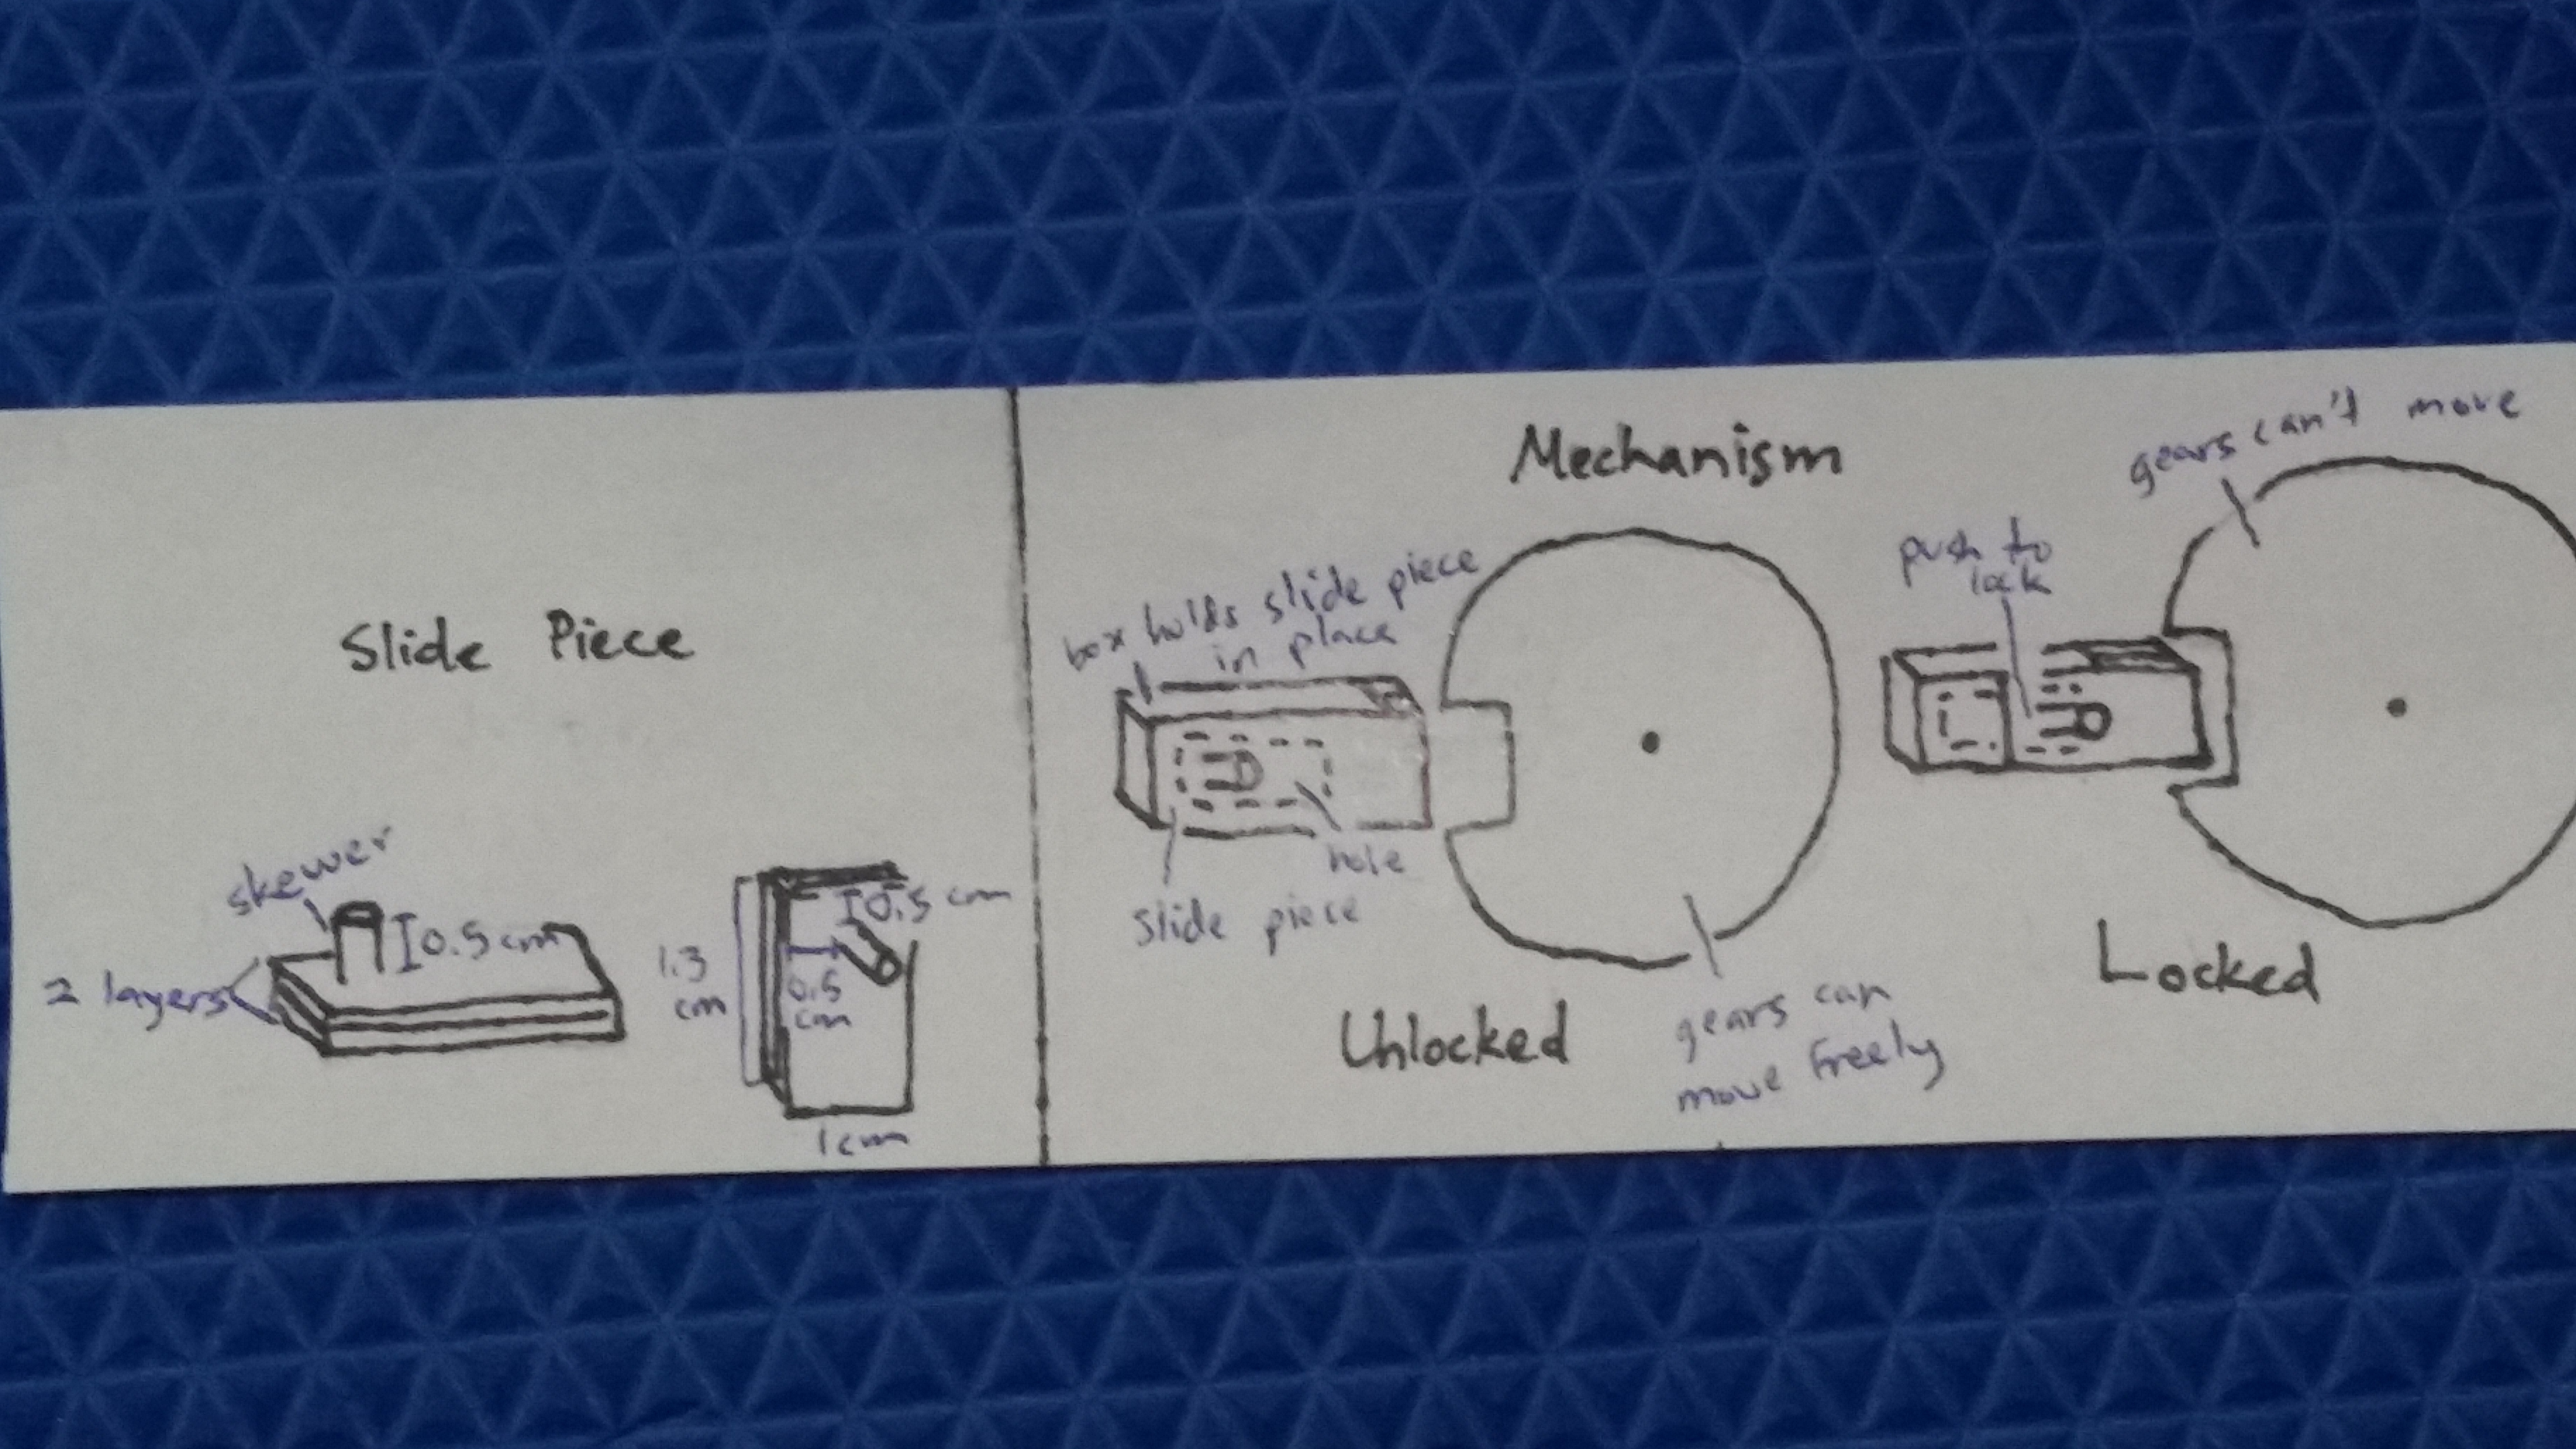 Slide Piece
skewer
I0.5cm
2 layers
I0.5 cm
1.3
cm
0.5
cm
1cm
Mechanism
box holds slide piece
in place
hole
slide piece
Unlocked
gears can
move freely
gears can't move
push to
lock
Locked